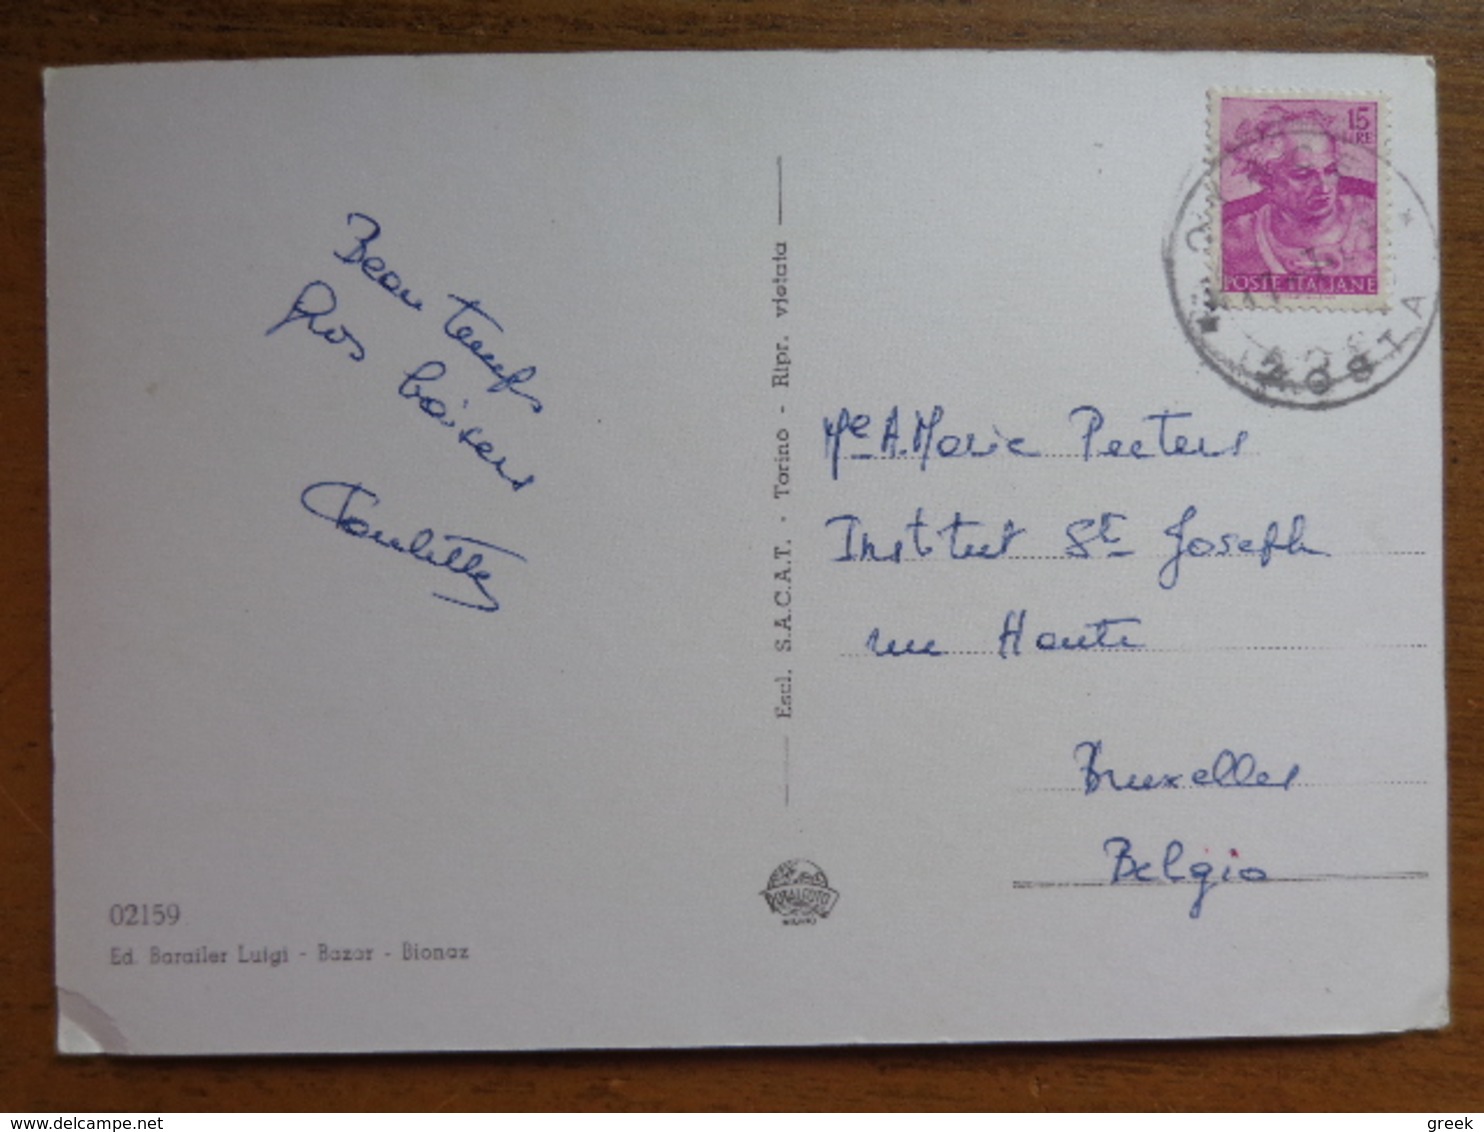 Beau temps
Gros baisers
15
LIRE
POSTE ITALIANE
AOSTA
Mle A.Marie Peeters
Institut St Joseph
rue Haute
Bruxelles
Belgio
Escl. S.A.C.A.T. - Torino - Ripr. vietata
MILANO
02159
Ed. Barailer Luigi - Bazar - Bionaz
greek